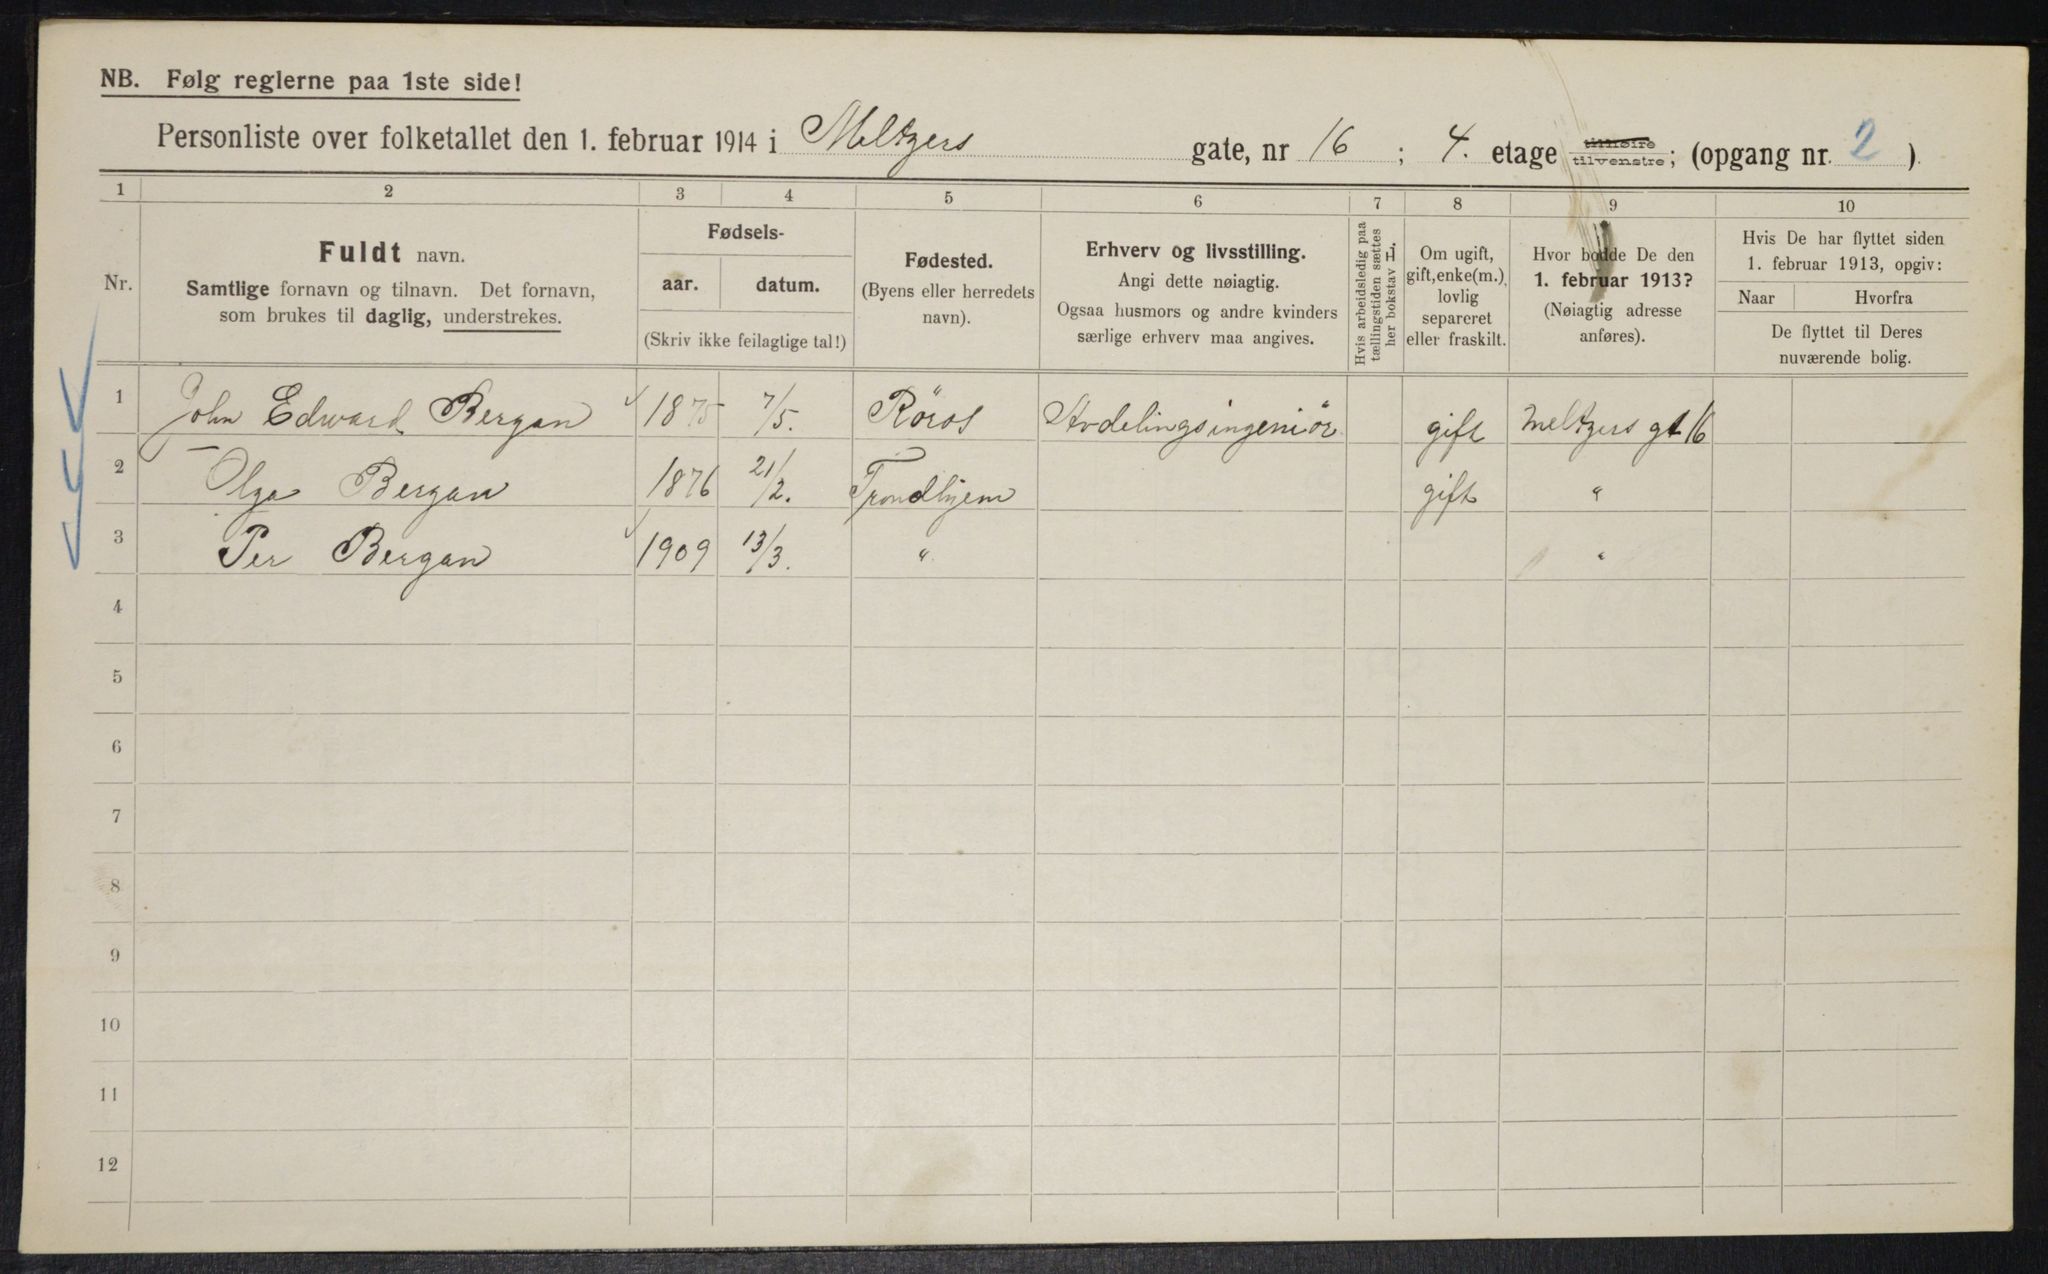 NB. Følg reglerne paa 1ste side!
Personliste over folketallet den 1. februar 1914 i Meltzers gate, nr 16 ; 4. etage tilhøire tilvenstre; (opgang nr. 2 ).
1 2 3 4 5 6 7 8 9 10
Nr.
Fuldt navn.
Samtlige fornavn og tilnavn. Det fornavn,
som brukes til daglig, understrekes.
Fødsels-
aar. datum.
(Skriv ikke feilagtige tal!)
Fødested.
(Byens eller herredets
navn).
Erhverv og livsstilling.
Angi dette nøiagtig.
Ogsaa husmors og andre kvinders
særlige erhverv maa angives.
Hvis arbeidsledig paa
tællingstiden sættes
her bokstav L.
Om ugift,
gift, enke(m.),
lovlig
separeret
eller fraskilt.
Hvor bodde De den
1. februar 1913?
(Nøiagtig adresse
anføres).
Hvis De har flyttet siden
1. februar 1913, opgiv:
Naar Hvorfra
De flyttet til Deres
nuværende bolig.
1 John Edward Bergan 1875 7/5. Röros Avdelingsingeniör gift Meltzers gt 16
2 Olga Bergan 1876 21/2. Trondhjem gift "
3 Per Bergan 1909 13/3. " "
4
5
6
7
8
9
10
11
12